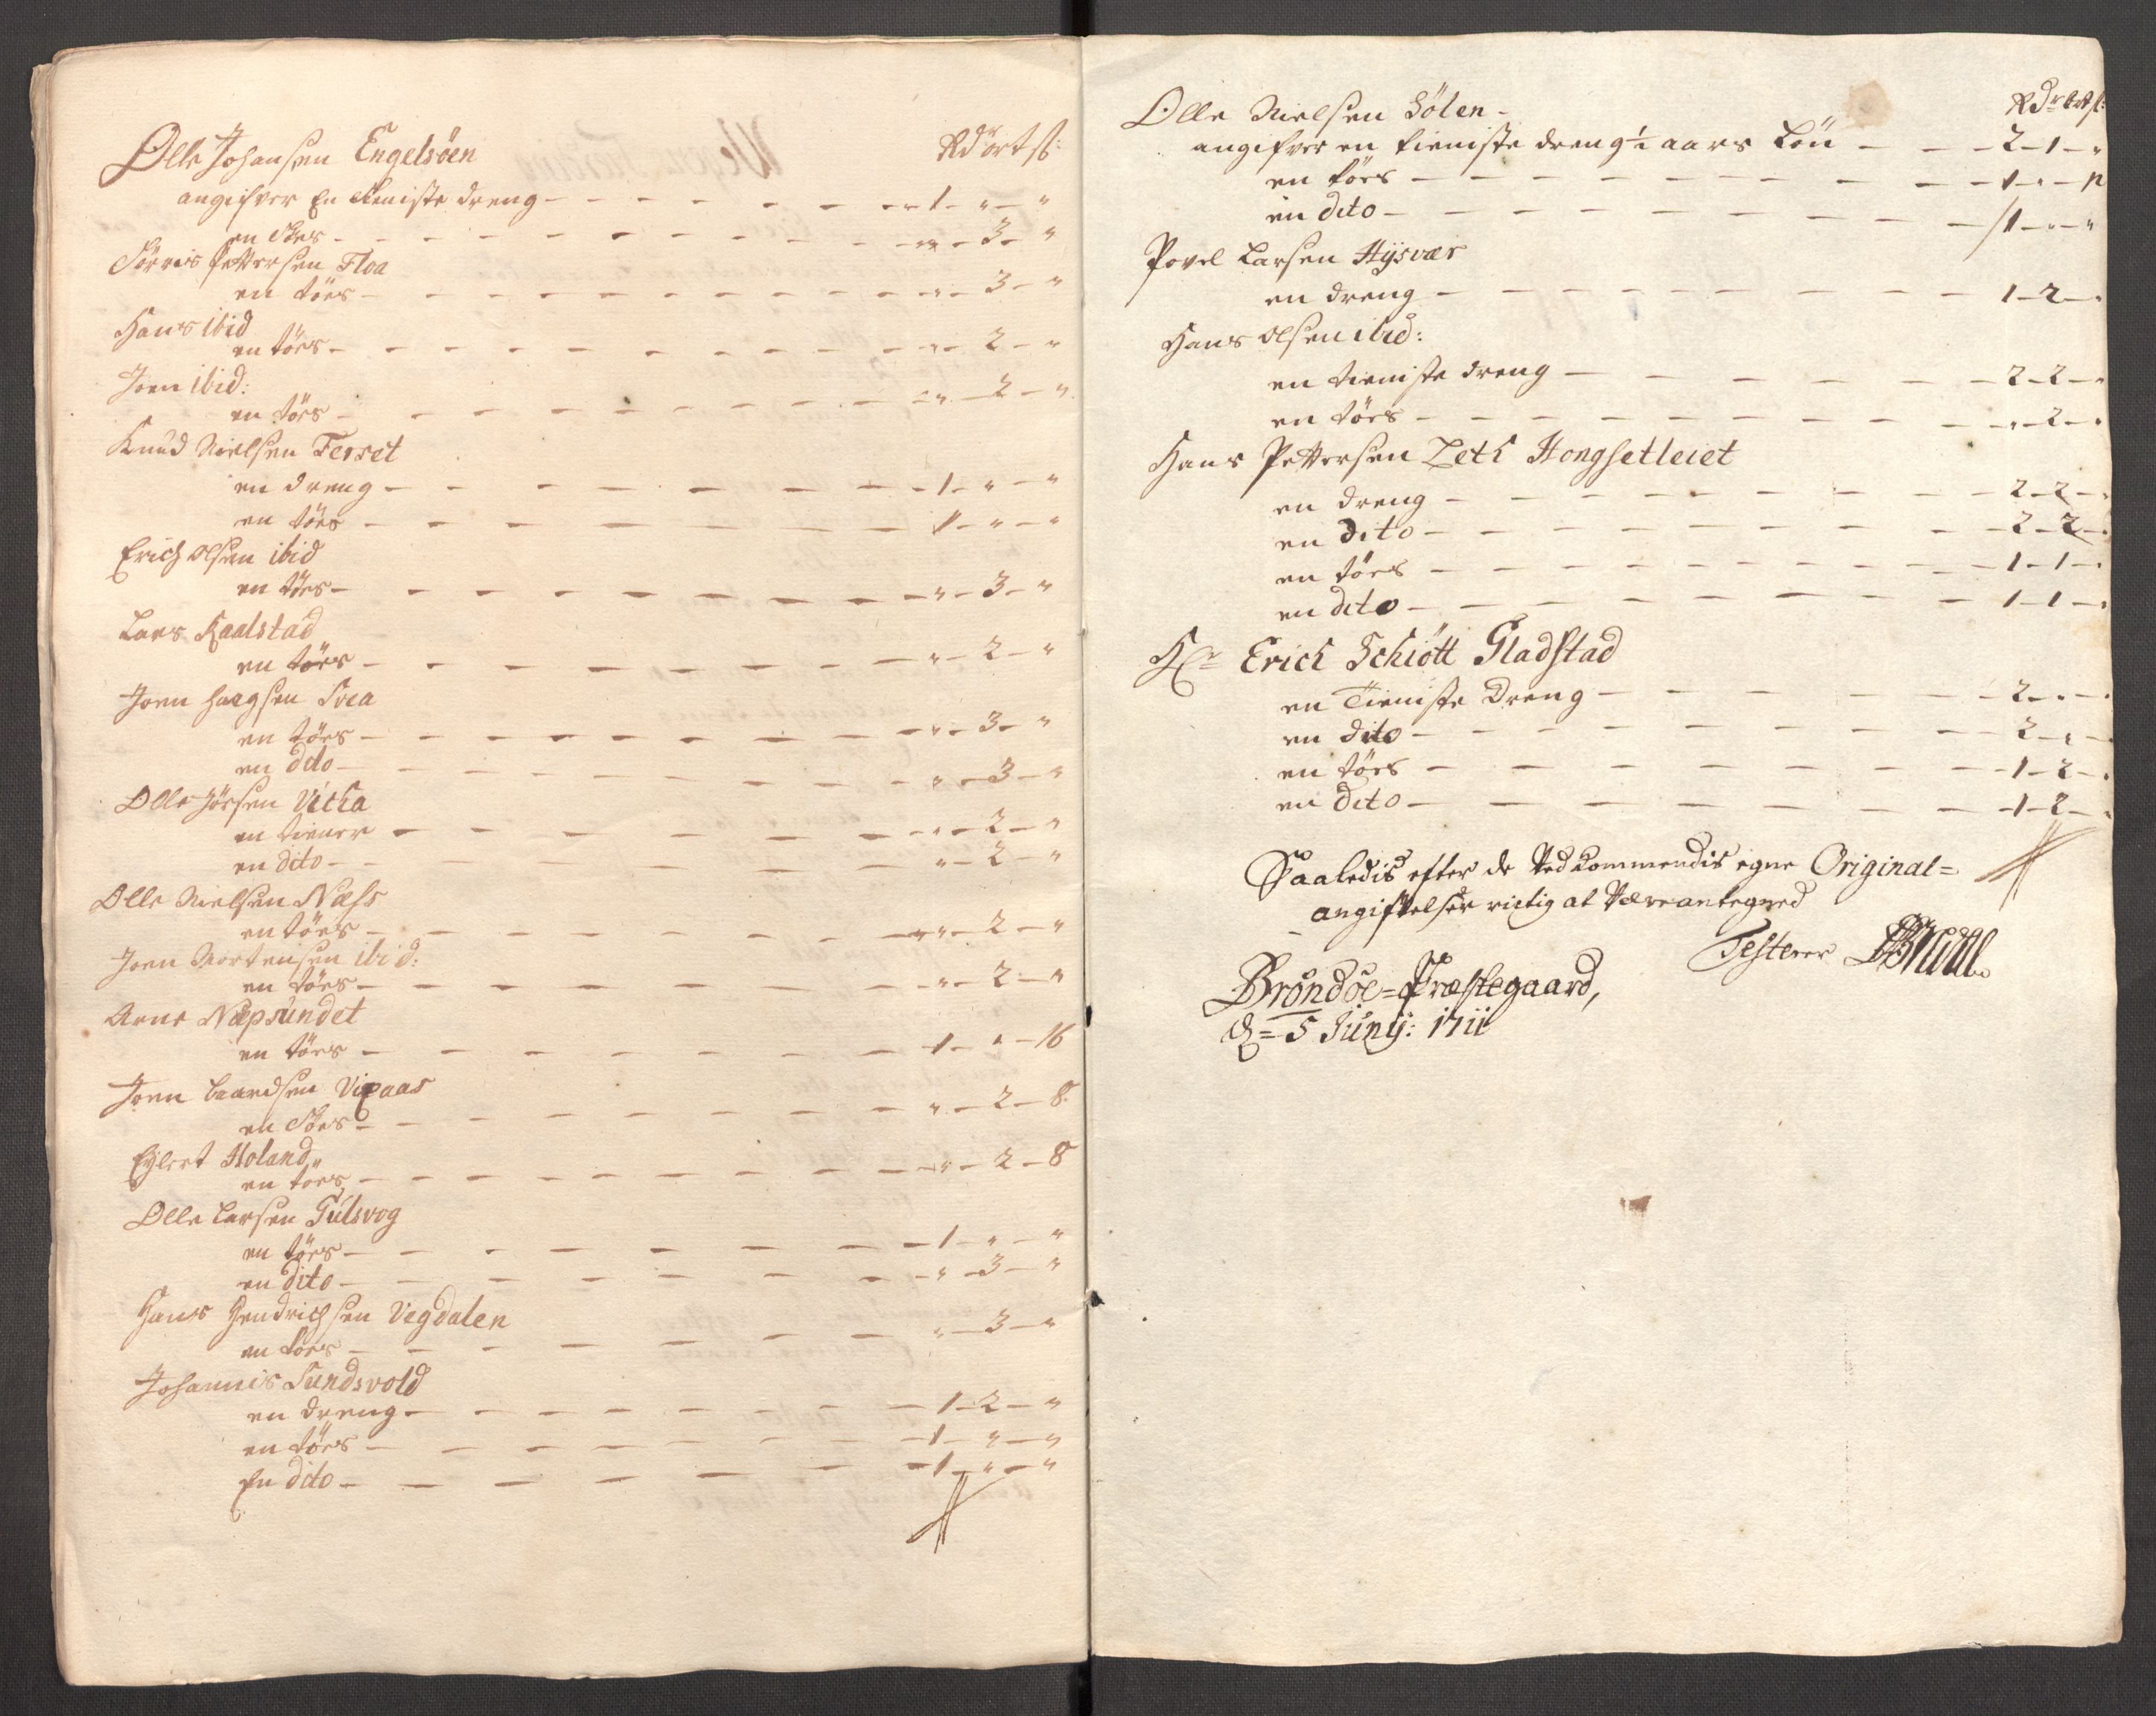 Olle Johansen Engelsöen Rdr ort s:
angifver En tieniste dreng - - - 1 - " - "
en tös - - - " - 3 - "
Sörris Pettersen Floa
en töes - - - " - 3 - "
Hans ibid
en töes - - - " - 2 - "
Joen ibid:
en töes - - - " - 2 - "
Knud Nielsen Terset
en dreng - - - 1 - " - "
en töes - - - 1 - " - "
Erich Olsen ibid
en töes - - - " - 3 - "
Lars Kaalstad
en töes - - - " - 2 - "
Joen Haagsen Svea
en töes - - - " - 3 - "
en dito - - - " - 3 - "
Olle Jörsen Vitka
en tiener - - - " - 2 - "
en dito - - - " - 2 - "
Olle Nielsen Næss
en töes - - - " - 2 - "
Joen Mortensen ibid:
en töes - - - " - 2 - "
Arne Næpsundet
en töes - - - 1 - " - 16
Joen baardsen Vixaas
en töes - - - " - 2 - 8
Eÿlert Holand
en töes - - - " - 2 - 8
Olle Larsen Gulsvog
en töes - - - 1 - " - "
en dito - - - " - 3 - "
Hans Hendrichsen Vegdalen
en töes - - - " - 3 - "
Johannis Sundsvold
en dreng - - - 1 - 2 - "
en töes - - - 1 - " - "
En dito - - - 1 - " - "
Olle Nielsen Sölen - Rdr ort s:
angifver en tieniste dreng ½ aars Lön - - 2 - 1 - "
en töes - - - 1 - " - 12
en dito - - - 1 - " - "
Povel Larsen Hÿsvær
en dreng - - - 1 - 2 - "
Hans Olsen ibid:
en tieniste dreng - - - 2 - 2 - "
en töes - - - " - 2 - "
Hans Pettersen Zeth Hongsetleiet
en dreng - - - 2 - 2 - "
en dito - - - 2 - 2 - "
en töes - - - 1 - 1 - "
en dito - - - 1 - 1 - "
Hr Erich Schiött Gladstad
en Tieniste Dreng - - - 2 - " - "
en dito - - - 2 - " - "
en töes - - - 1 - 2 - "
en dito - - - 1 - 2 - "
Saaledis efter de Vedkommendis egne Original=
angiftelser rictig at Være antegned
Testerer
Brönöe=Præstegaard,
d= 5 Junÿ: 1711